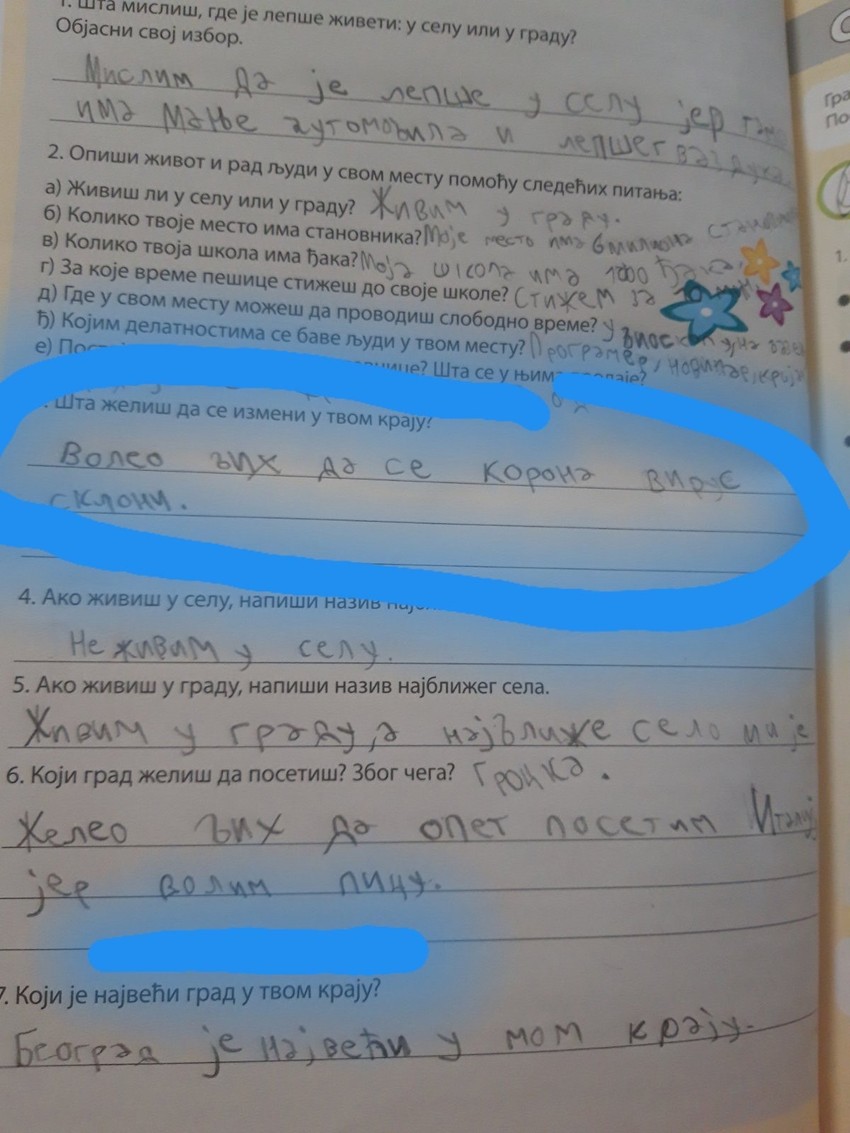 1. Шта мислиш, где је лепше живети: у селу или у граду?
Објасни свој избор.
Мислим да је лепше у селу јер
има мање аутомобила и лепшег
2. Опиши живот и рад људи у свом месту помоћу следећих питања:
а) Живиш ли у селу или у граду? Живим у граду.
б) Колико твоје место има становника? Моје место има 6 милиона
в) Колико твоја школа има ђака? Моја школа има 1000 ђака.
г) За које време пешице стижеш до своје школе? Стижем за
д) Где у свом месту можеш да проводиш слободно време? у
ђ) Којим делатностима се баве људи у твом месту? Програмер,
Шта се у њима
Шта желиш да се измени у твом крају?
Волео бих да се корона вирус
склони.
4. Ако живиш у селу, напиши назив
Не живим у селу.
5. Ако живиш у граду, напиши назив најближег села.
Живим у граду, а најближе село ми је
6. Који град желиш да посетиш? Због чега? Гроцка.
Желео бих да опет посетим
јер волим пицу.
7. Који је највећи град у твом крају?
Београд је највећи у мом крају.
Гра
По
1.